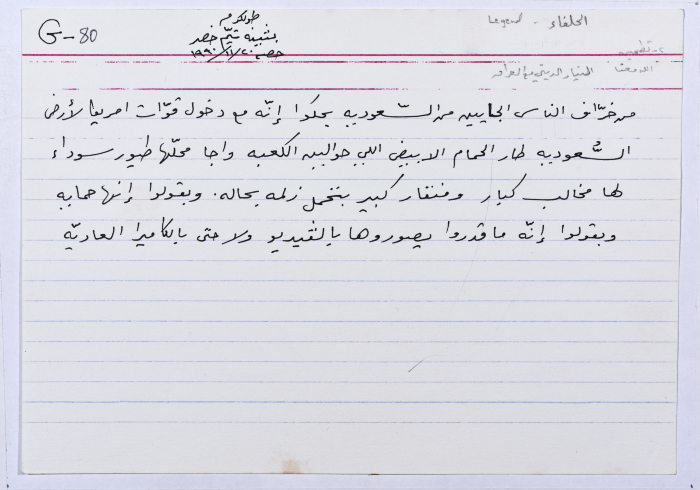 G-80
طولكرم
بثينة تيّم خضر
١٩٩٠/١١/٢٠
Legend - الحلفاء
من خرّاف الناس الجايين من السّعوديه بحكوا إنّه مع دخول قوّات امريكا لأرض
السّعوديه طار الحمام الابيض اللي حوالين الكعبه واجا محلّها طيور سوداء
لها مخالب كبار ومنقار كبير بتحمل زلمه بحاله. وبقولوا إنها حمايه
وبقولوا إنّه ما قدروا يصوروها بالڤيديو ولا حتى بالكاميرا العاديّه